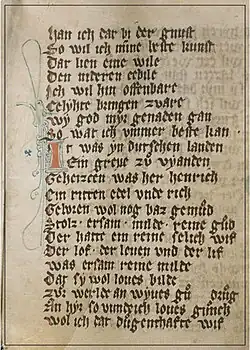 Han ich dar bi der gunst
So wil ich mine beste kunst
Dar lien eine wile
Den nideren edile
Ich wil hin offenbare
bringen zware
Wy god myr genaden gan
So war ich ymmer beste kan
Ir was yn dutschen landen
Ein greve zu vyanden
Geheizen was her henrich
Ein ritter edel unde rich
Geboren wol noch baz gemud
Stolz ersam milde reine gud
Der hatte ein reine selich wif
Der lof der leven und der lif
was ersam reine milde
Daz sy wol loves bilde
Zu werlde an wyves
An hyr so vundrich loves
Wol ich dat dugenthafte wif